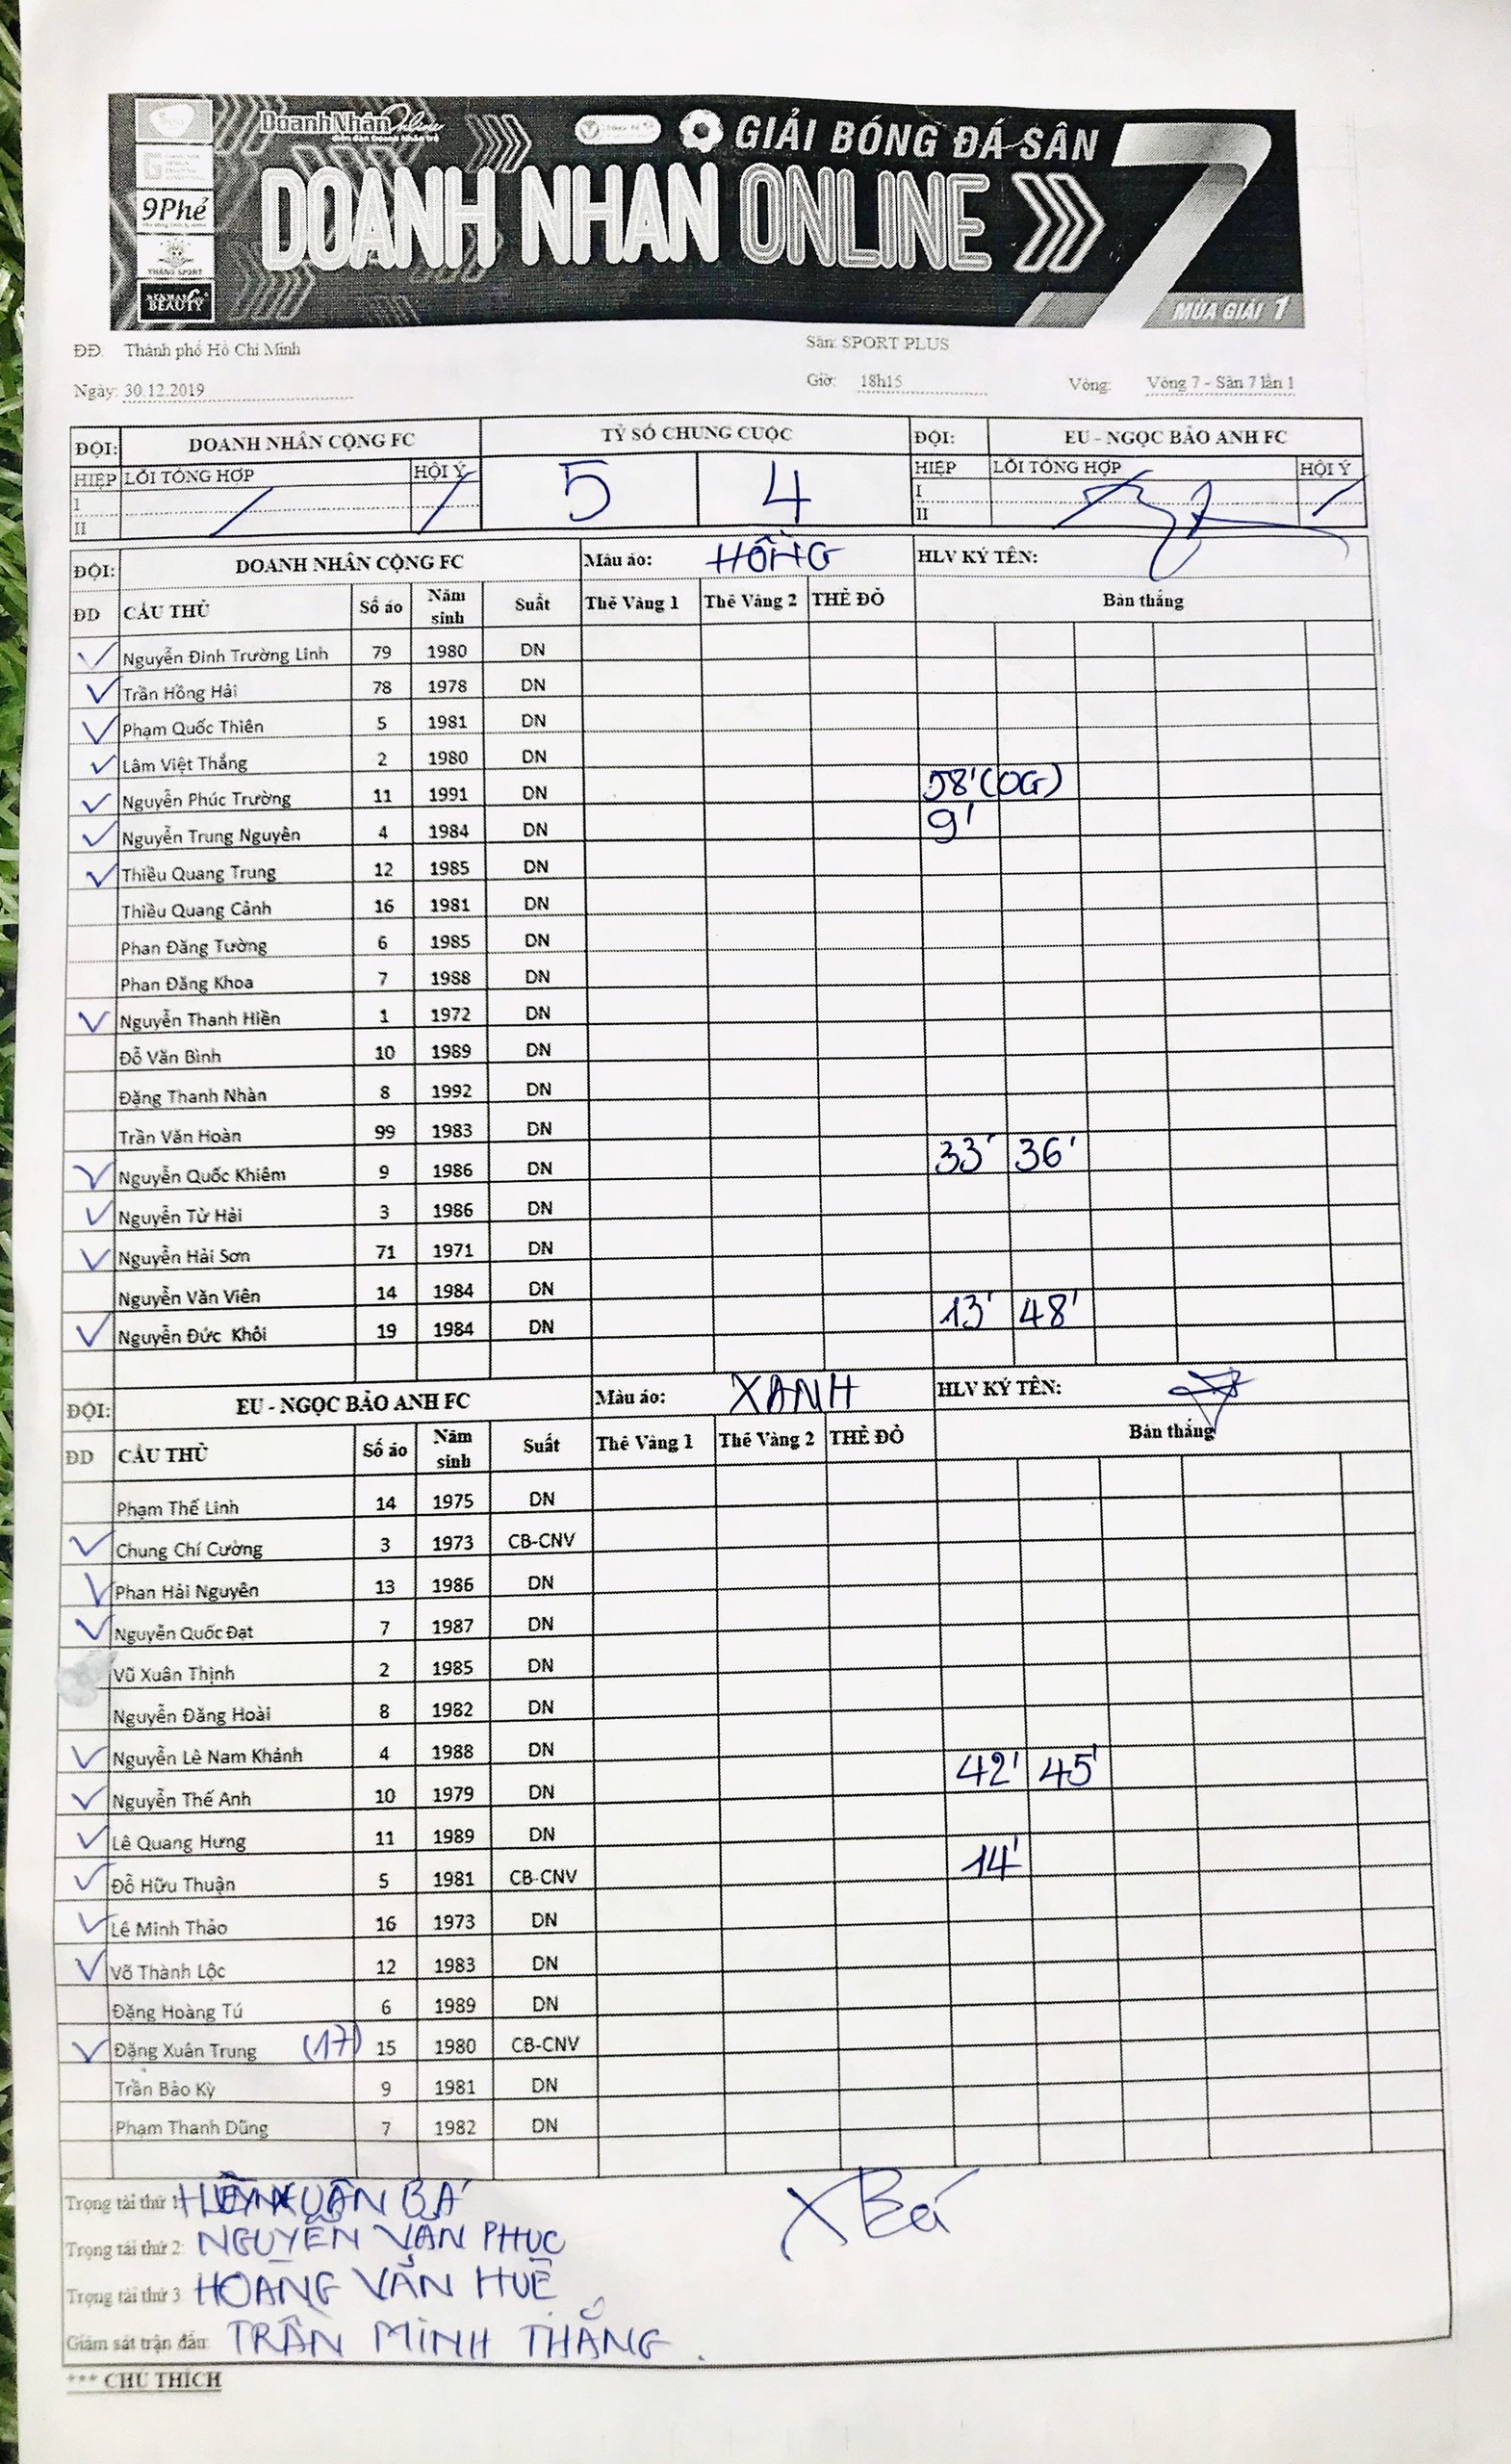 DoanhNhân Online
GIẢI BÓNG ĐÁ SÂN 7
DOANH NHÂN ONLINE
9Phẻ
THĂNG SPORT
BEAUTY
MÙA GIẢI 1
ĐĐ: Thành phố Hồ Chí Minh Sân: SPORT PLUS
Ngày: 30.12.2019 Giờ: 18h15 Vòng: Vòng 7 - Sân 7 lần 1
ĐỘI: DOANH NHÂN CỘNG FC TỶ SỐ CHUNG CUỘC ĐỘI: EU - NGỌC BẢO ANH FC
HIỆP LỖI TỔNG HỢP HỘI Ý 5 4 HIỆP LỖI TỔNG HỢP HỘI Ý
I I
II II
ĐỘI: DOANH NHÂN CỘNG FC Màu áo: HỒNG HLV KÝ TÊN:
ĐD CẦU THỦ Số áo Năm sinh Suất Thẻ Vàng 1 Thẻ Vàng 2 THẺ ĐỎ Bàn thắng
✓ Nguyễn Đình Trường Linh 79 1980 DN
✓ Trần Hồng Hải 78 1978 DN
✓ Phạm Quốc Thiên 5 1981 DN
✓ Lâm Việt Thắng 2 1980 DN
✓ Nguyễn Phúc Trường 11 1991 DN 58' (OG)
✓ Nguyễn Trung Nguyên 4 1984 DN 9'
✓ Thiều Quang Trung 12 1985 DN
Thiều Quang Cảnh 16 1981 DN
Phan Đăng Tường 6 1985 DN
Phan Đăng Khoa 7 1988 DN
✓ Nguyễn Thanh Hiền 1 1972 DN
Đỗ Văn Bình 10 1989 DN
Đặng Thanh Nhàn 8 1992 DN
Trần Văn Hoàn 99 1983 DN
✓ Nguyễn Quốc Khiêm 9 1986 DN 33' 36'
✓ Nguyễn Từ Hải 3 1986 DN
✓ Nguyễn Hải Sơn 71 1971 DN
Nguyễn Văn Viên 14 1984 DN
✓ Nguyễn Đức Khôi 19 1984 DN 13' 48'
ĐỘI: EU - NGỌC BẢO ANH FC Màu áo: XANH HLV KÝ TÊN:
ĐD CẦU THỦ Số áo Năm sinh Suất Thẻ Vàng 1 Thẻ Vàng 2 THẺ ĐỎ Bàn thắng
Phạm Thế Linh 14 1975 DN
✓ Chung Chí Cường 3 1973 CB-CNV
✓ Phan Hải Nguyên 13 1986 DN
✓ Nguyễn Quốc Đạt 7 1987 DN
Vũ Xuân Thịnh 2 1985 DN
Nguyễn Đăng Hoài 8 1982 DN
✓ Nguyễn Lê Nam Khánh 4 1988 DN
✓ Nguyễn Thế Anh 10 1979 DN 42' 45'
✓ Lê Quang Hưng 11 1989 DN
✓ Đỗ Hữu Thuận 5 1981 CB-CNV 14'
✓ Lê Minh Thảo 16 1973 DN
✓ Võ Thành Lộc 12 1983 DN
Đặng Hoàng Tú 6 1989 DN
✓ Đặng Xuân Trung (17) 15 1980 CB-CNV
Trần Bảo Kỳ 9 1981 DN
Phạm Thanh Dũng 7 1982 DN
Trọng tài thứ 1: XUÂN BÁ XBá
Trọng tài thứ 2: NGUYỄN VĂN PHÚC
Trọng tài thứ 3: HOÀNG VĂN HUÊ
Giám sát trận đấu: TRẦN MINH THẮNG.
*** CHÚ THÍCH